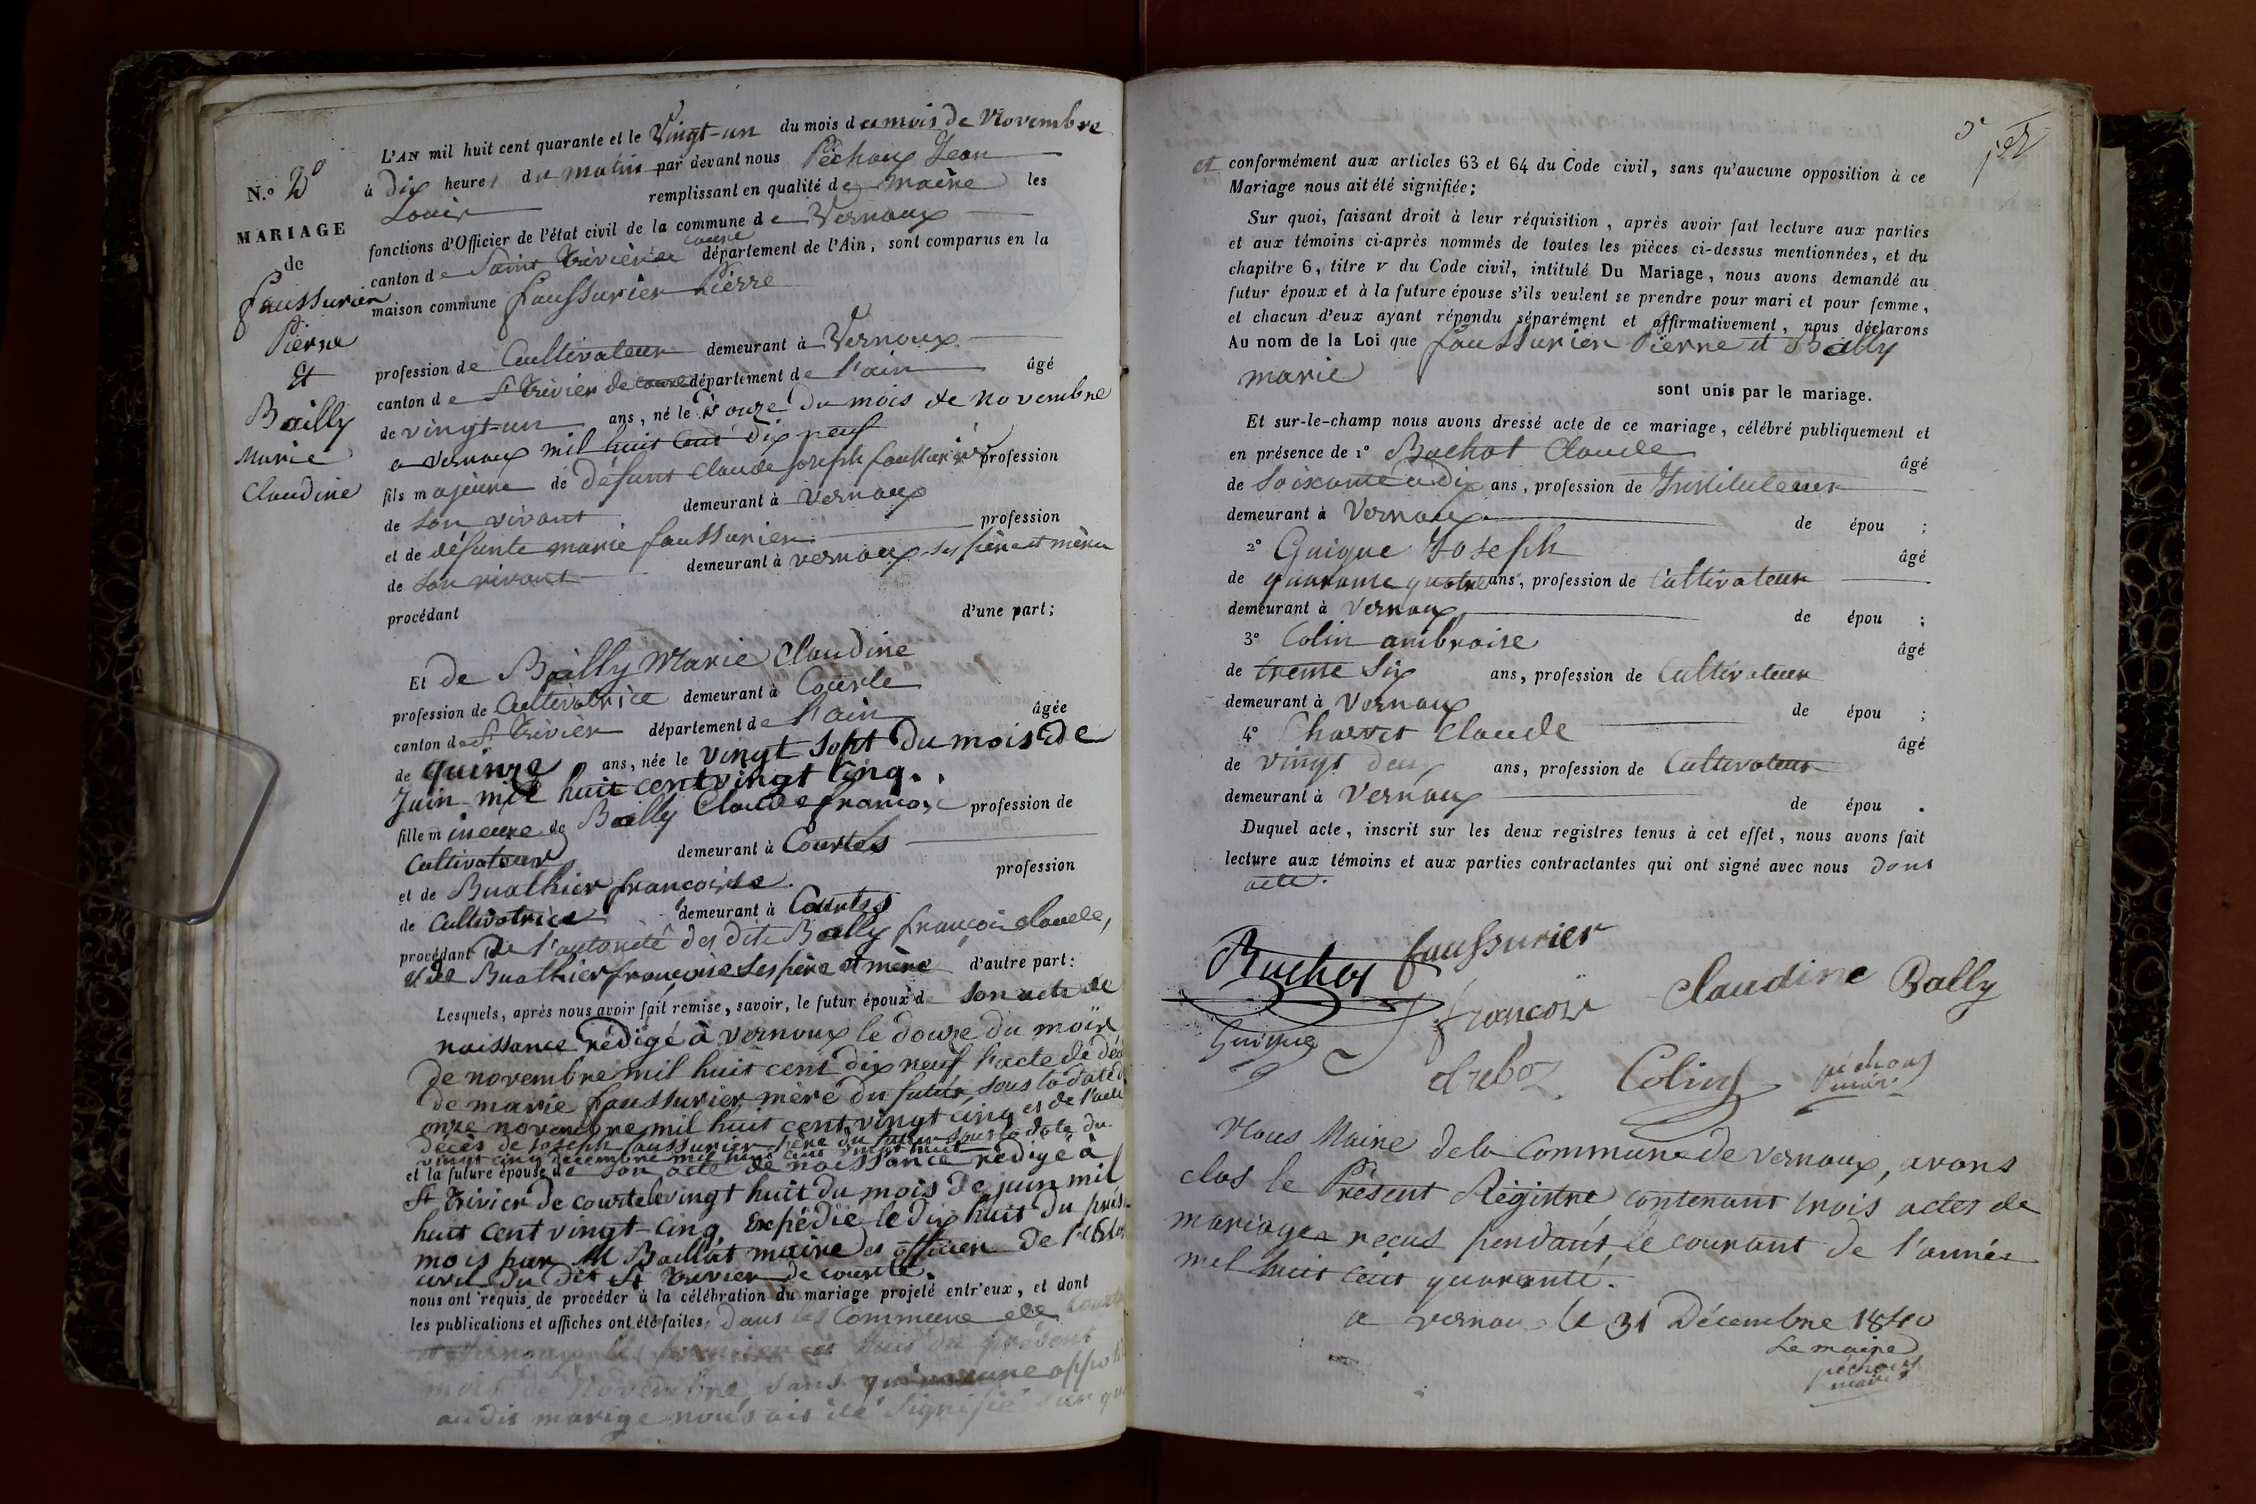 N.º 3º
MARIAGE
de
faussurier
Pierre
et
Bailly
Marie
Claudine
L'AN mil huit cent quarante et le Vingt-un du mois de mois de Novembre
à dix heures du matin par devant nous Péchoux Jean
Louis remplissant en qualité de maire les
fonctions d'Officier de l'état civil de la commune de Vernoux
canton de Saint Trivier de courte département de l'Ain, sont comparus en la
maison commune faussurier Pierre
profession de Cultivateur demeurant à Vernoux
canton de St Trivier de courte département de l'ain âgé
de vingt-un ans, né le douze du mois de novembre
a vernoux mil huit cent dix neuf
fils majeure de défunt Claude joseph faussurier profession
de son vivant demeurant à vernoux
et de défunte marie faussurier profession
de son vivant demeurant à vernoux ses père et mère
procédant d'une part;
Et de Bailly Marie Claudine
profession de Cultivatrice demeurant à Courte
canton de St Trivier département de l'ain âgée
de quinze ans, née le vingt sept du mois de
Juin mil huit cent vingt cinq.
fille mineure de Bailly Claude françois profession de
Cultivateur demeurant à Courtes
et de Buathier françoise profession
de Cultivatrice demeurant à Courtes
procédant de l'autorité des dits Bailly françois claude,
et de Buathier françoise ses père et mère d'autre part:
Lesquels, après nous avoir fait remise, savoir, le futur époux de son acte de
naissance rédigé à vernoux le douze du mois
de novembre mil huit cent dix neuf l'acte de
de marie faussurier mère du futur sous la date
onze novembre mil huit cent vingt cinq et de l'acte
décès de joseph faussurier père du futur sous la date du
vingt cinq décembre mil huit cent vingt huit
et la future épouse de son acte de naissance rédigé à
St trivier de courte le vingt huit du mois de juin mil
huit cent vingt-cinq, Expédié le dix huit du
mois par M Baillat maire et officier de
civil du dit St trivier de courte.
nous ont requis de procéder à la célébration du mariage projeté entr'eux, et dont
les publications et affiches ont été faites, dans les Commune de
et vernoux les premier et huit du présent
mois de Novembre, sans qu'aucune
au dit mariage nous ait été signifié
et conformément aux articles 63 et 64 du Code civil, sans qu'aucune opposition à ce
Mariage nous ait été signifiée;
Sur quoi, faisant droit à leur réquisition, après avoir fait lecture aux parties
et aux témoins ci-après nommés de toutes les pièces ci-dessus mentionnées, et du
chapitre 6, titre V du Code civil, intitulé Du Mariage, nous avons demandé au
futur époux et à la future épouse s'ils veulent se prendre pour mari et pour femme,
et chacun d'eux ayant répondu séparément et affirmativement, nous déclarons
Au nom de la Loi que faussurier Pierre et Bailly
marie
sont unis par le mariage.
Et sur-le-champ nous avons dressé acte de ce mariage, célébré publiquement et
en présence de 1º Buchot Claude âgé
de soixante et dix ans, profession de Instituteur
demeurant à Vernoux de épou ;
2º Guigue Joseph âgé
de quarante quatre ans, profession de Cultivateur
demeurant à Vernoux de épou ;
3º Colin ambroise âgé
de trente six ans, profession de Cultivateur
demeurant à Vernoux de épou ;
4º Charvet Claude âgé
de vingt deux ans, profession de Cultivateur
demeurant à Vernoux de épou .
Duquel acte, inscrit sur les deux registres tenus à cet effet, nous avons fait
lecture aux témoins et aux parties contractantes qui ont signé avec nous dont
acte.
Buchot faussurier
françois Claudine Bally
Guigue
Colin péchoux
maire
Nous Maire de la Commune de vernoux, avons
clos le Présent Régistre contenant trois actes de
mariages reçus pendant le courant de l'année
mil huit cent quarante.
a vernoux le 31 Décembre 1840
Le maire
péchoux
maire